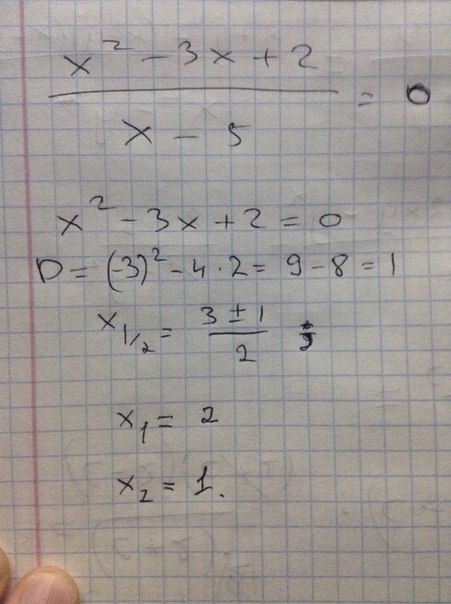 x² - 3x + 2
x - 5
= 0
x² - 3x + 2 = 0
D = (-3)² - 4 · 2 = 9 - 8 = 1
x₁/₂ = (3 ± 1)/2
x₁ = 2
x₂ = 1.